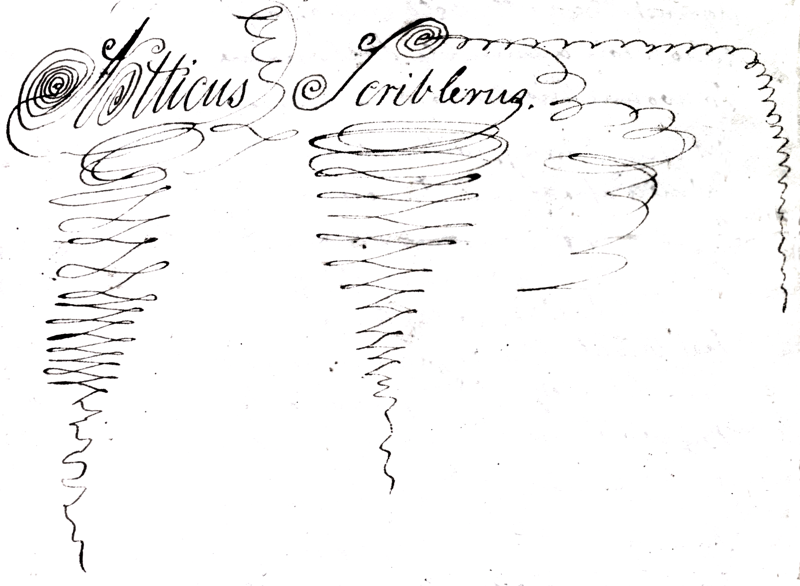 Atticus Scriblerus.